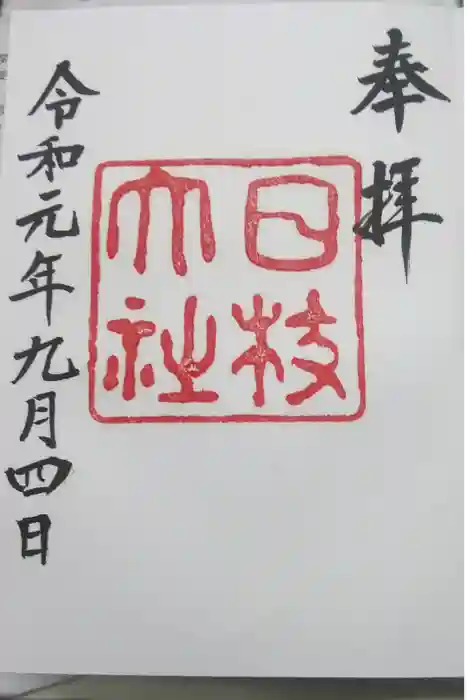 奉拝
日枝
大社
令和元年九月四日